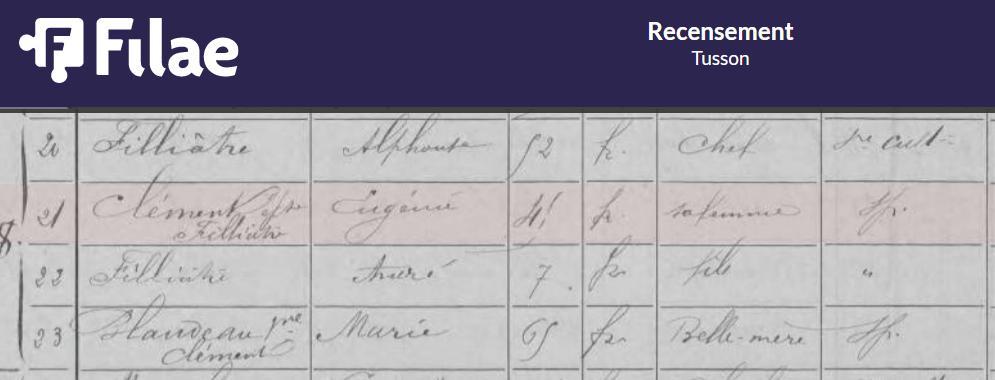 Filae
Recensement
Tusson
20 Filliâtre Alphonse 52 fr. Chef pre cult-
21 Clément Eugénie 41 fr. sa femme sp.
Filliâtre
22 Filliâtre André 7 fr. fils "
23 Blandeau Marie 65 fr. Belle-mère sp.
Clément